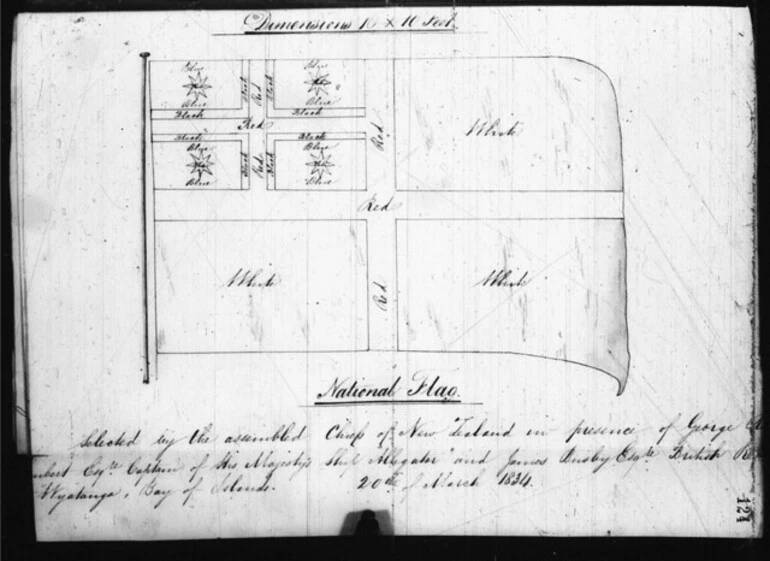 Dimensions 16 x 10 Feet.
Blue Blue
Black Red Black
Blue Blue
Black
Red
Red
White
Black Black
Blue Blue
Black Red Black
Blue Blue
Red
White
Red
White
National Flag.
Selected by the assembled Chiefs of New Zealand in presence of George
mbert Esqre Captain of His Majesty's Ship Alligator" and James Busby Esqre British
Wyatanga, Bay of Islands. 20th of March 1834.
124